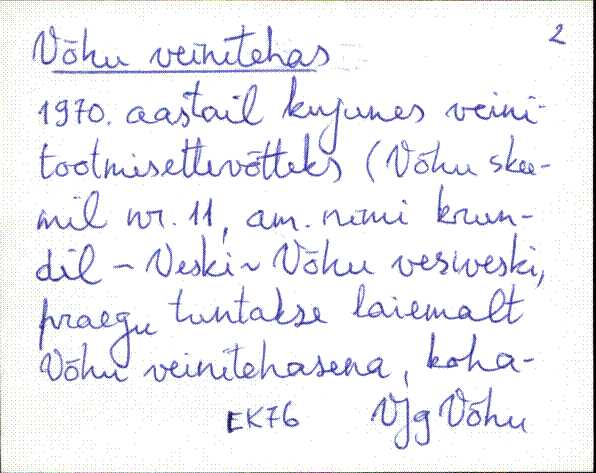 2
Võhu veinitehas
1970. aastail kujunes veini-
tootmisettevõtteks (Võhu skee-
mil nr. 11, am. nimi krun-
dil - Veski ~ Võhu vesiveski,
praegu tuntakse laiemalt
Võhu veinitehasena, koha-
EK76 VJg Võhu